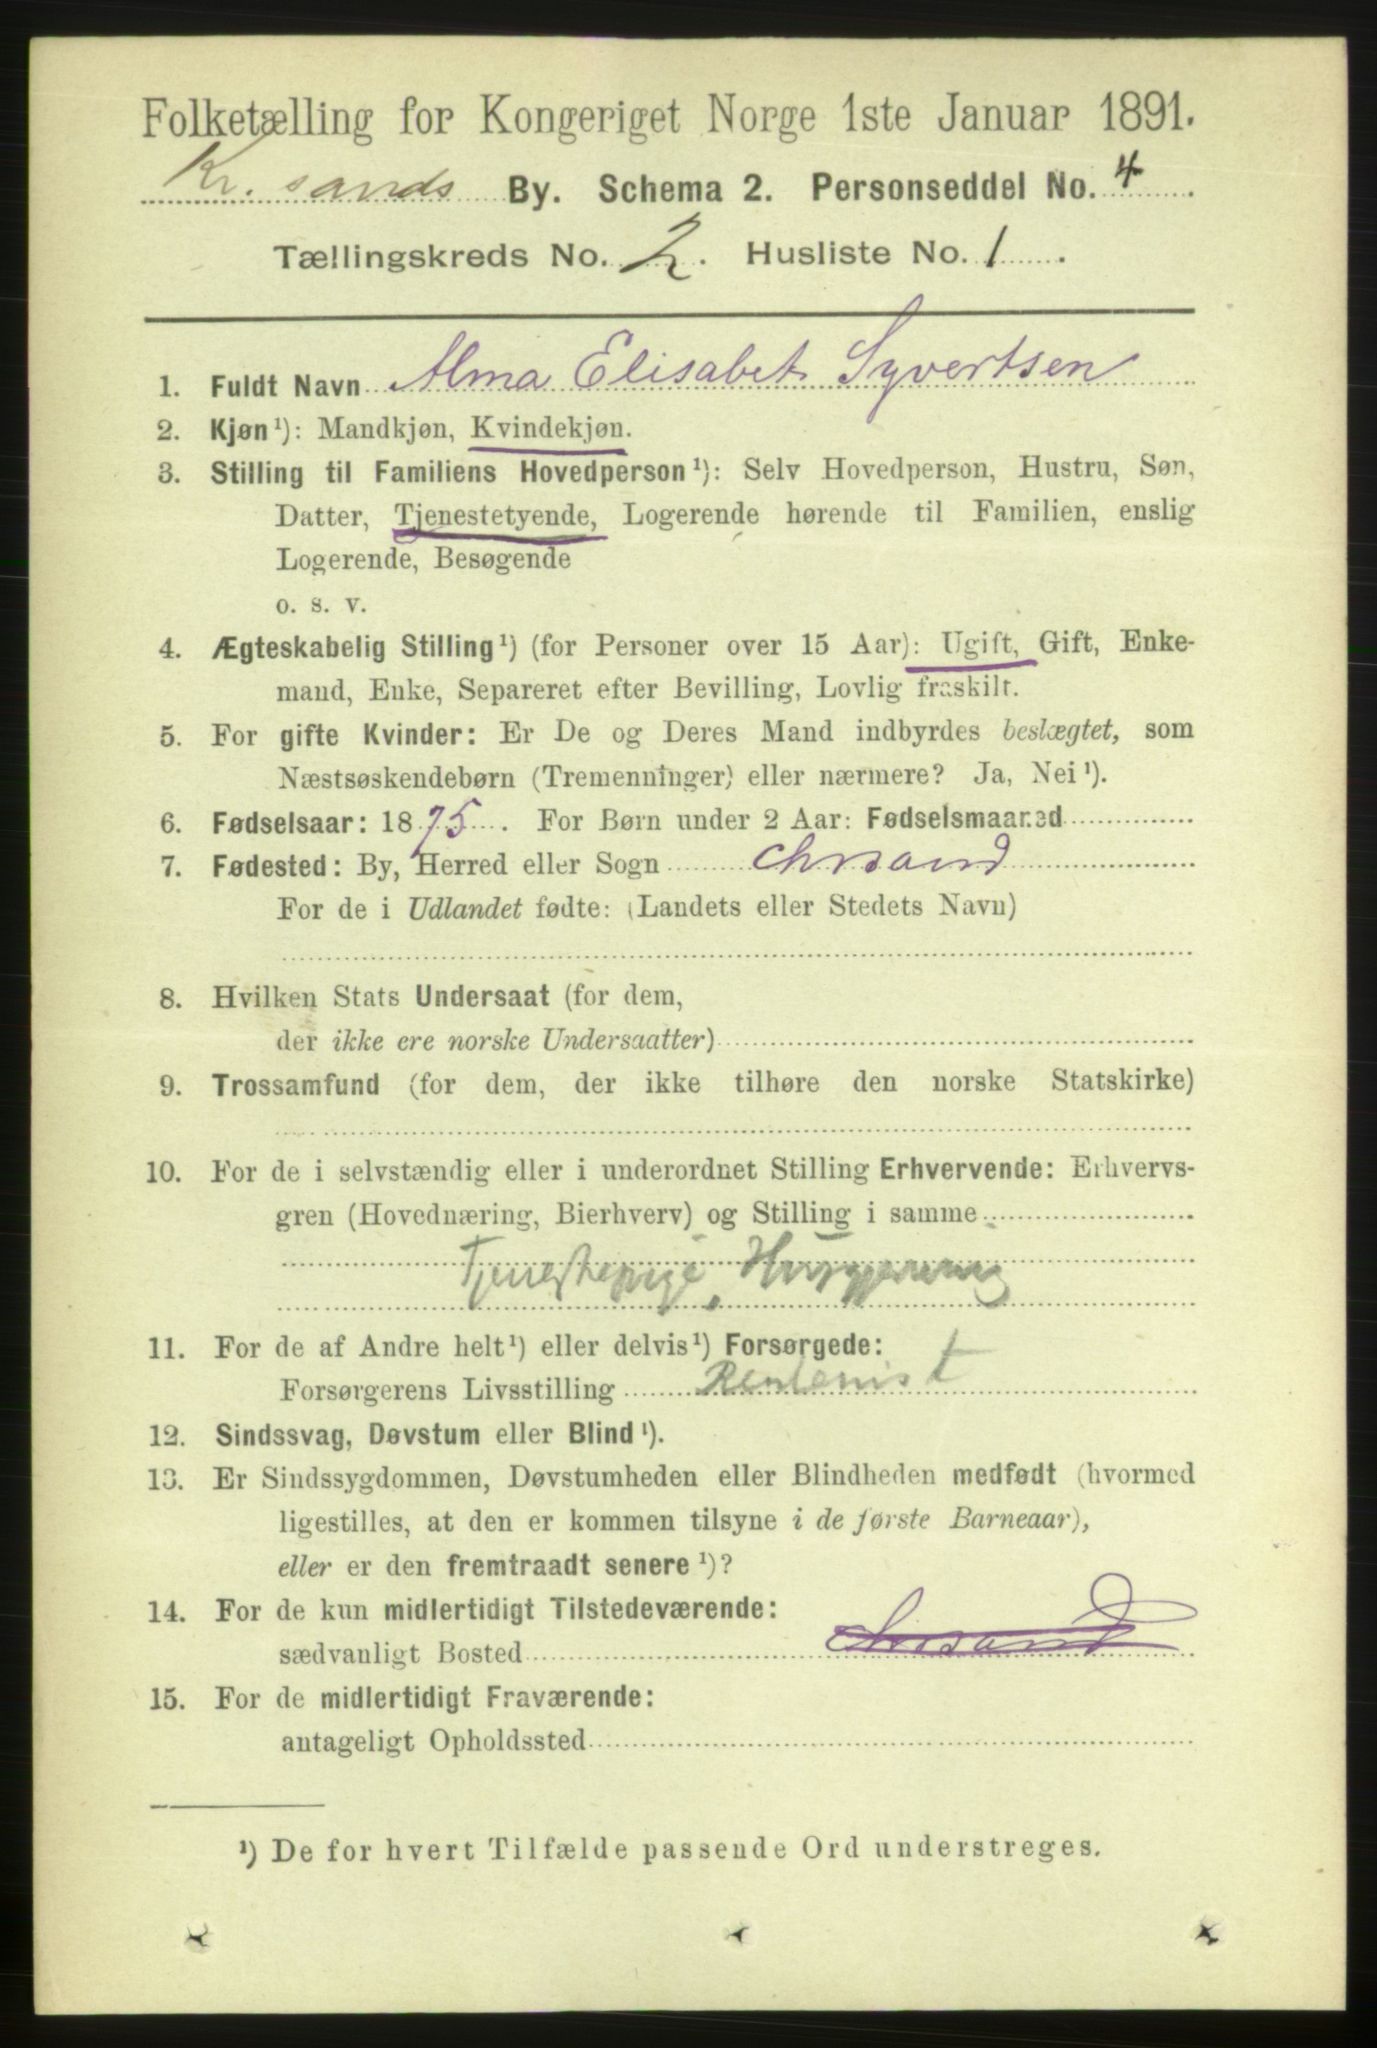 Folketælling for Kongeriget Norge 1ste Januar 1891.
Kr.sands By. Schema 2. Personseddel No. 4
Tællingskreds No. 2. Husliste No. 1.
1. Fuldt Navn Alma Elisabet Syvertsen
2. Kjøn¹): Mandkjøn, Kvindekjøn.
3. Stilling til Familiens Hovedperson¹): Selv Hovedperson, Hustru, Søn,
Datter, Tjenestetyende, Logerende hørende til Familien, enslig
Logerende, Besøgende
o. s. v.
4. Ægteskabelig Stilling¹) (for Personer over 15 Aar): Ugift, Gift, Enke-
mand, Enke, Separeret efter Bevilling, Lovlig fraskilt.
5. For gifte Kvinder: Er De og Deres Mand indbyrdes beslægtet, som
Næstsøskendebørn (Tremenninger) eller nærmere? Ja, Nei¹).
6. Fødselsaar: 1875. For Børn under 2 Aar: Fødselsmaaned
7. Fødested: By, Herred eller Sogn Chrsand
For de i Udlandet fødte: (Landets eller Stedets Navn)
8. Hvilken Stats Undersaat (for dem,
der ikke ere norske Undersaatter)
9. Trossamfund (for dem, der ikke tilhøre den norske Statskirke)
10. For de i selvstændig eller i underordnet Stilling Erhvervende: Erhvervs-
gren (Hovednæring, Bierhverv) og Stilling i samme
Tjenestepige, Husgjerning
11. For de af Andre helt¹) eller delvis¹) Forsørgede:
Forsørgerens Livsstilling Rentenist
12. Sindssvag, Døvstum eller Blind¹).
13. Er Sindssygdommen, Døvstumheden eller Blindheden medfødt (hvormed
ligestilles, at den er kommen tilsyne i de første Barneaar),
eller er den fremtraadt senere¹)?
14. For de kun midlertidigt Tilstedeværende:
sædvanligt Bosted Chrsand
15. For de midlertidigt Fraværende:
antageligt Opholdssted
¹) De for hvert Tilfælde passende Ord understreges.